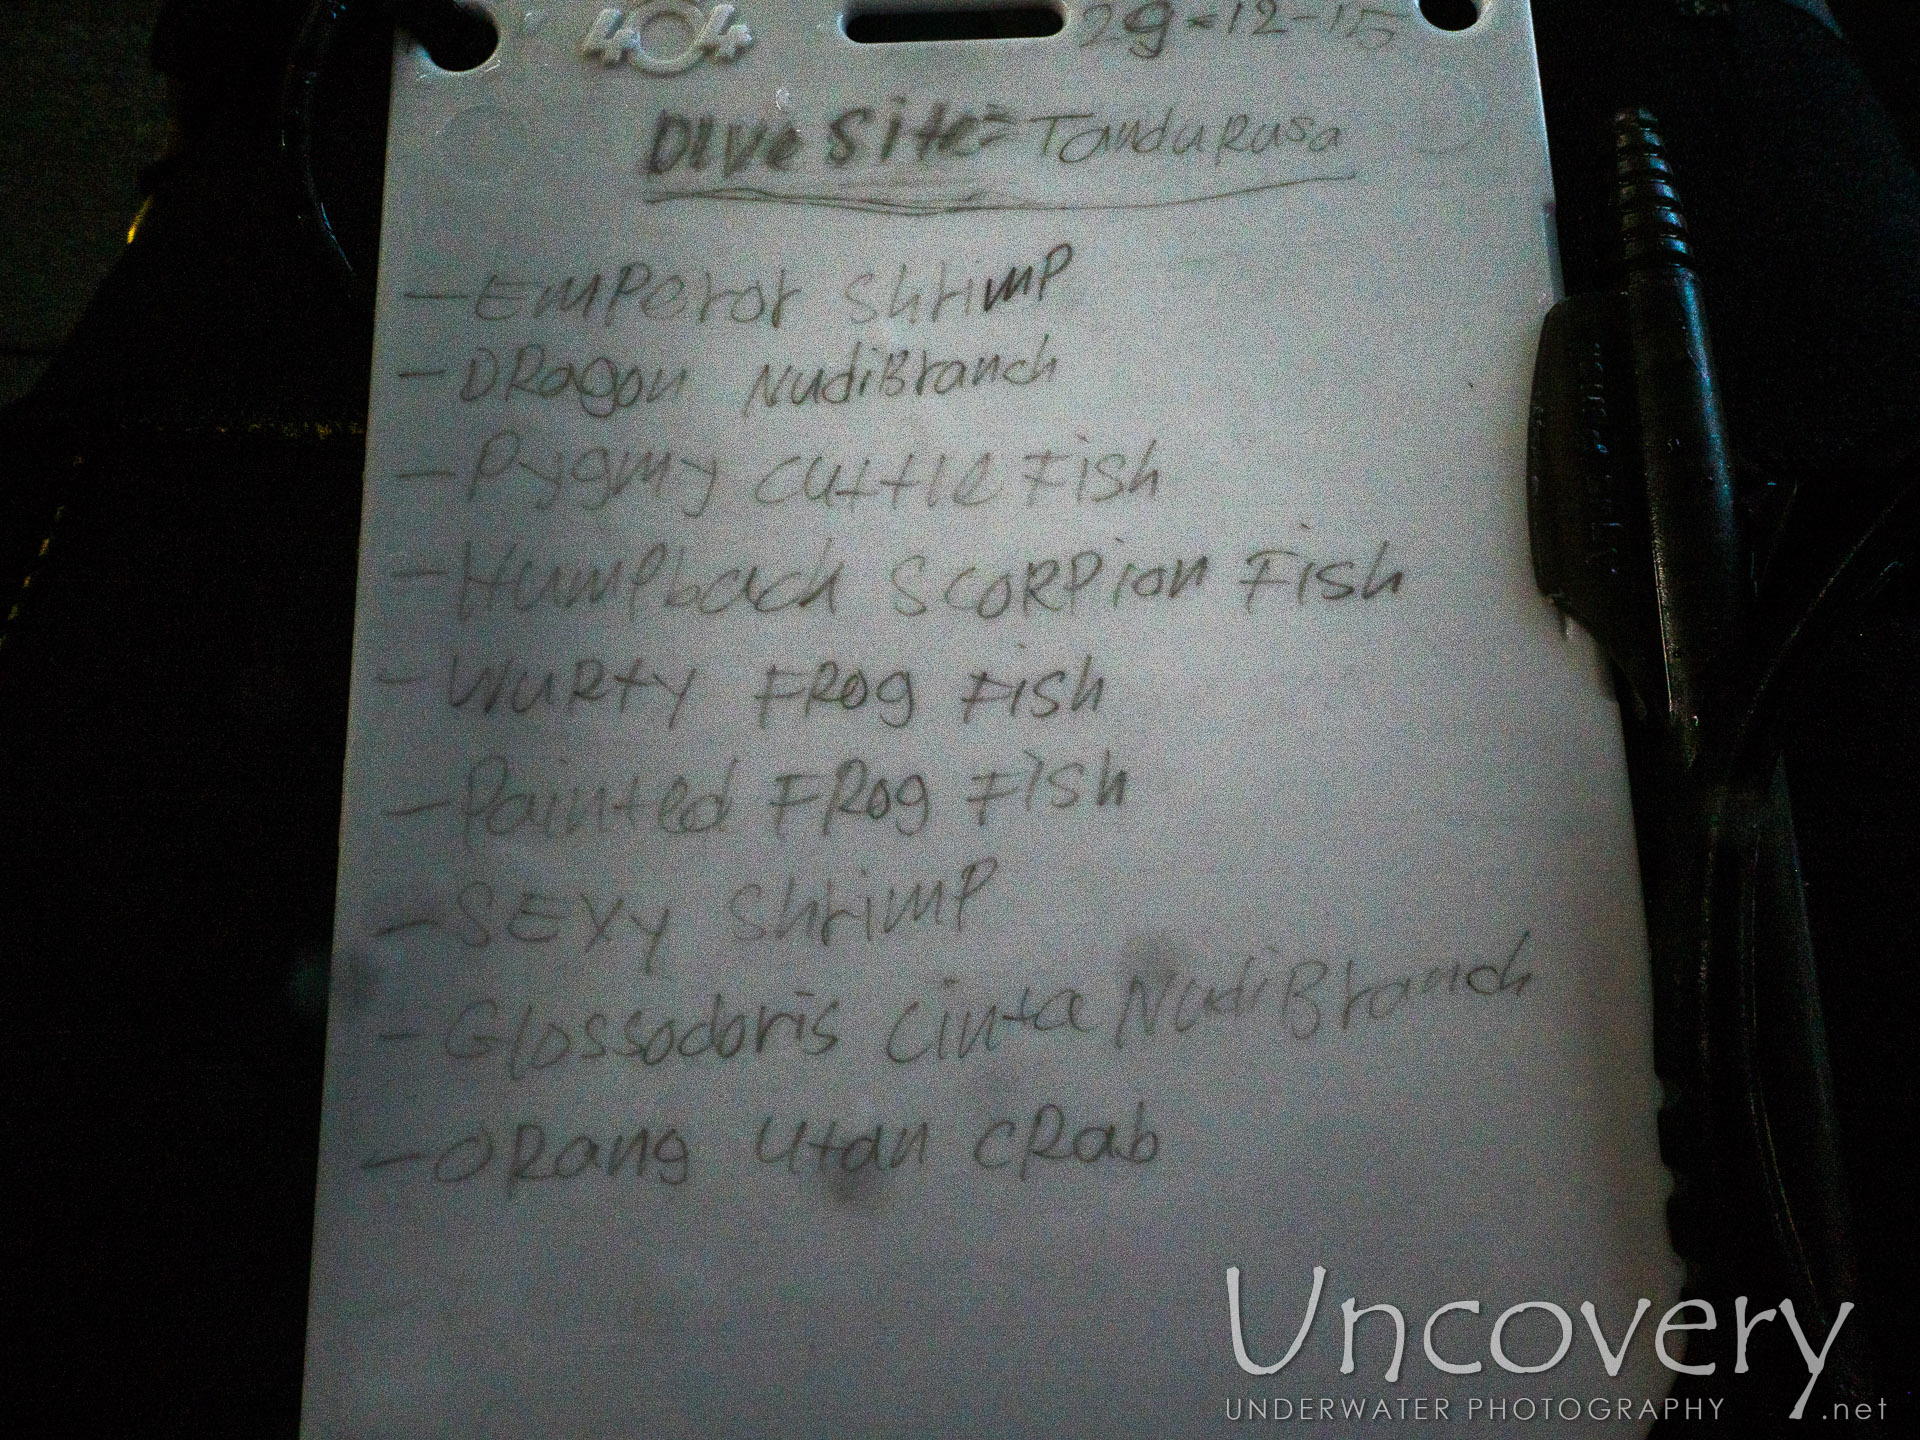 404
29-12-15
Dive Site: Tandu Rusa
- Emperor Shrimp
- Dragon NudiBranch
- Pygmy Cuttle Fish
- Humpback Scorpion Fish
- Wurty Frog Fish
- Painted Frog Fish
- Sexy Shrimp
- Glossodoris Cinta NudiBranch
- Orang Utan Crab
Uncovery
UNDERWATER PHOTOGRAPHY .net